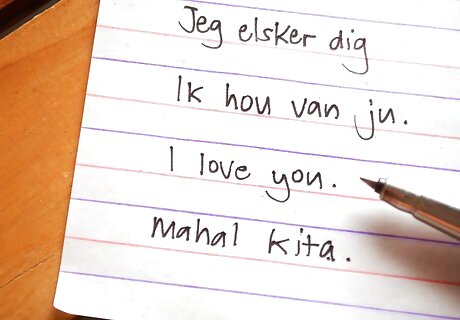 Jeg elsker dig
Ik hou van ju.
I love you.
Mahal kita.